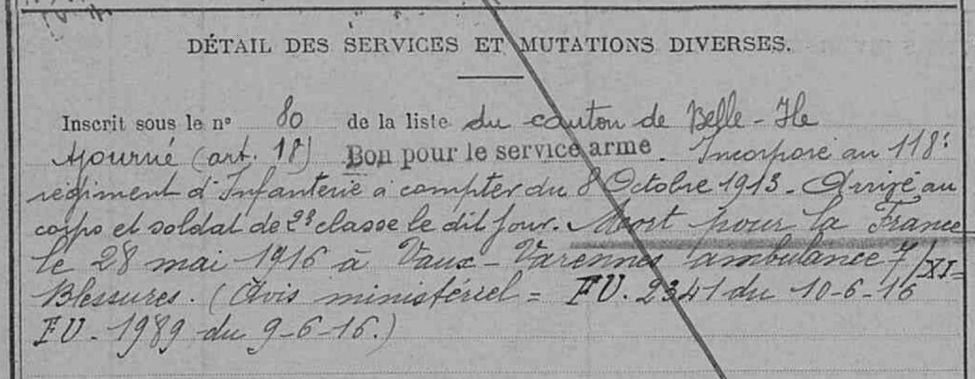 DÉTAIL DES SERVICES ET MUTATIONS DIVERSES.
Inscrit sous le n° 80 de la liste du canton de Belle-Ile
Ajourné (art. 18) Bon pour le service armé. Incorporé au 118e
régiment d'Infanterie à compter du 8 Octobre 1913 - Arrivé au
corps et soldat de 2e classe le dit jour. Mort pour la France
le 28 mai 1916 à Vaux-Varennes ambulance 7/XI -
Blessures. (Avis ministériel = FU. 2341 du 10-6-16
FU. 1989 du 9-6-16.)